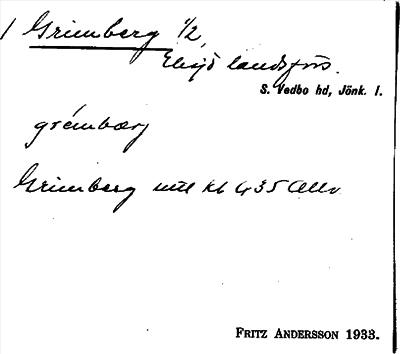 1 Grimberg 1/2,
Eksjö landsförs.
S. Vedbo hd, Jönk. l.
grémbærj
Grimberg mtl kb G 35 Allm
FRITZ ANDERSSON 1933.